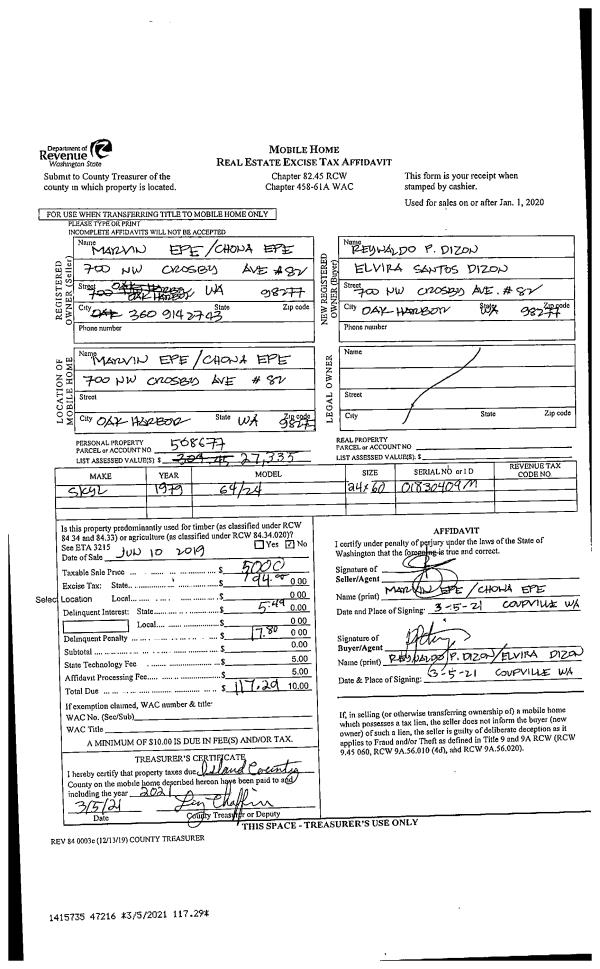 Department of
Revenue
Washington State
MOBILE HOME
REAL ESTATE EXCISE TAX AFFIDAVIT
Submit to County Treasurer of the
county in which property is located.
Chapter 82.45 RCW
Chapter 458-61A WAC
This form is your receipt when
stamped by cashier.
Used for sales on or after Jan. 1, 2020
FOR USE WHEN TRANSFERRING TITLE TO MOBILE HOME ONLY
PLEASE TYPE OR PRINT
INCOMPLETE AFFIDAVITS WILL NOT BE ACCEPTED
REGISTERED
OWNER (Seller)
Name MARVIN EPE / CHONA EPE
700 NW CROSBY AVE #82
Street OAK HARBOR WA 98277
City State Zip code
360 914 2743
Phone number
NEW REGISTERED
OWNER (Buyer)
Name REYNALDO P. DIZON
ELVIRA SANTOS DIZON
Street 700 NW CROSBY AVE. #82
City OAK HARBOR State WA Zip code 98277
Phone number
LOCATION OF
MOBILE HOME
Name MARVIN EPE / CHONA EPE
700 NW CROSBY AVE #82
Street
City OAK HARBOR State WA Zip code 98277
LEGAL OWNER
Name
Street
City State Zip code
PERSONAL PROPERTY
PARCEL or ACCOUNT NO 508677
LIST ASSESSED VALUE(S) $ 27,335
REAL PROPERTY
PARCEL or ACCOUNT NO
LIST ASSESSED VALUE(S): $
MAKE YEAR MODEL SIZE SERIAL NO or I D REVENUE TAX CODE NO.
SKYL 1979 64/24 24x60 01830409M
Is this property predominantly used for timber (as classified under RCW
84.34 and 84.33) or agriculture (as classified under RCW 84.34.020)?
See ETA 3215 Yes No
Date of Sale JUN 10 2019
Taxable Sale Price $ 5000
Excise Tax: State $ 94.00 0.00
Select Location Local $ 0.00
Delinquent Interest: State $ 5.49 0.00
Local $ 0.00
Delinquent Penalty $ 17.80 0.00
Subtotal $ 0.00
State Technology Fee $ 5.00
Affidavit Processing Fee $ 5.00
Total Due $ 117.29 10.00
If exemption claimed, WAC number & title:
WAC No. (Sec/Sub)
WAC Title
A MINIMUM OF $10.00 IS DUE IN FEE(S) AND/OR TAX.
TREASURER'S CERTIFICATE
I hereby certify that property taxes due Island County
County on the mobile home described hereon have been paid to and
including the year 2021
3/5/21
Date County Treasurer or Deputy
AFFIDAVIT
I certify under penalty of perjury under the laws of the State of
Washington that the foregoing is true and correct.
Signature of
Seller/Agent
Name (print) MARVIN EPE / CHONA EPE
Date and Place of Signing: 3-5-21 COUPVILLE WA
Signature of
Buyer/Agent
Name (print) REYNALDO P. DIZON/ELVIRA DIZON
Date & Place of Signing: 3-5-21 COUPVILLE WA
If, in selling (or otherwise transferring ownership of) a mobile home
which possesses a tax lien, the seller does not inform the buyer (new
owner) of such a lien, the seller is guilty of deliberate deception as it
applies to Fraud and/or Theft as defined in Title 9 and 9A RCW (RCW
9.45 060, RCW 9A.56.010 (4d), and RCW 9A.56.020).
THIS SPACE - TREASURER'S USE ONLY
REV 84 0003e (12/13/19) COUNTY TREASURER
1415735 47216 *3/5/2021 117.29*